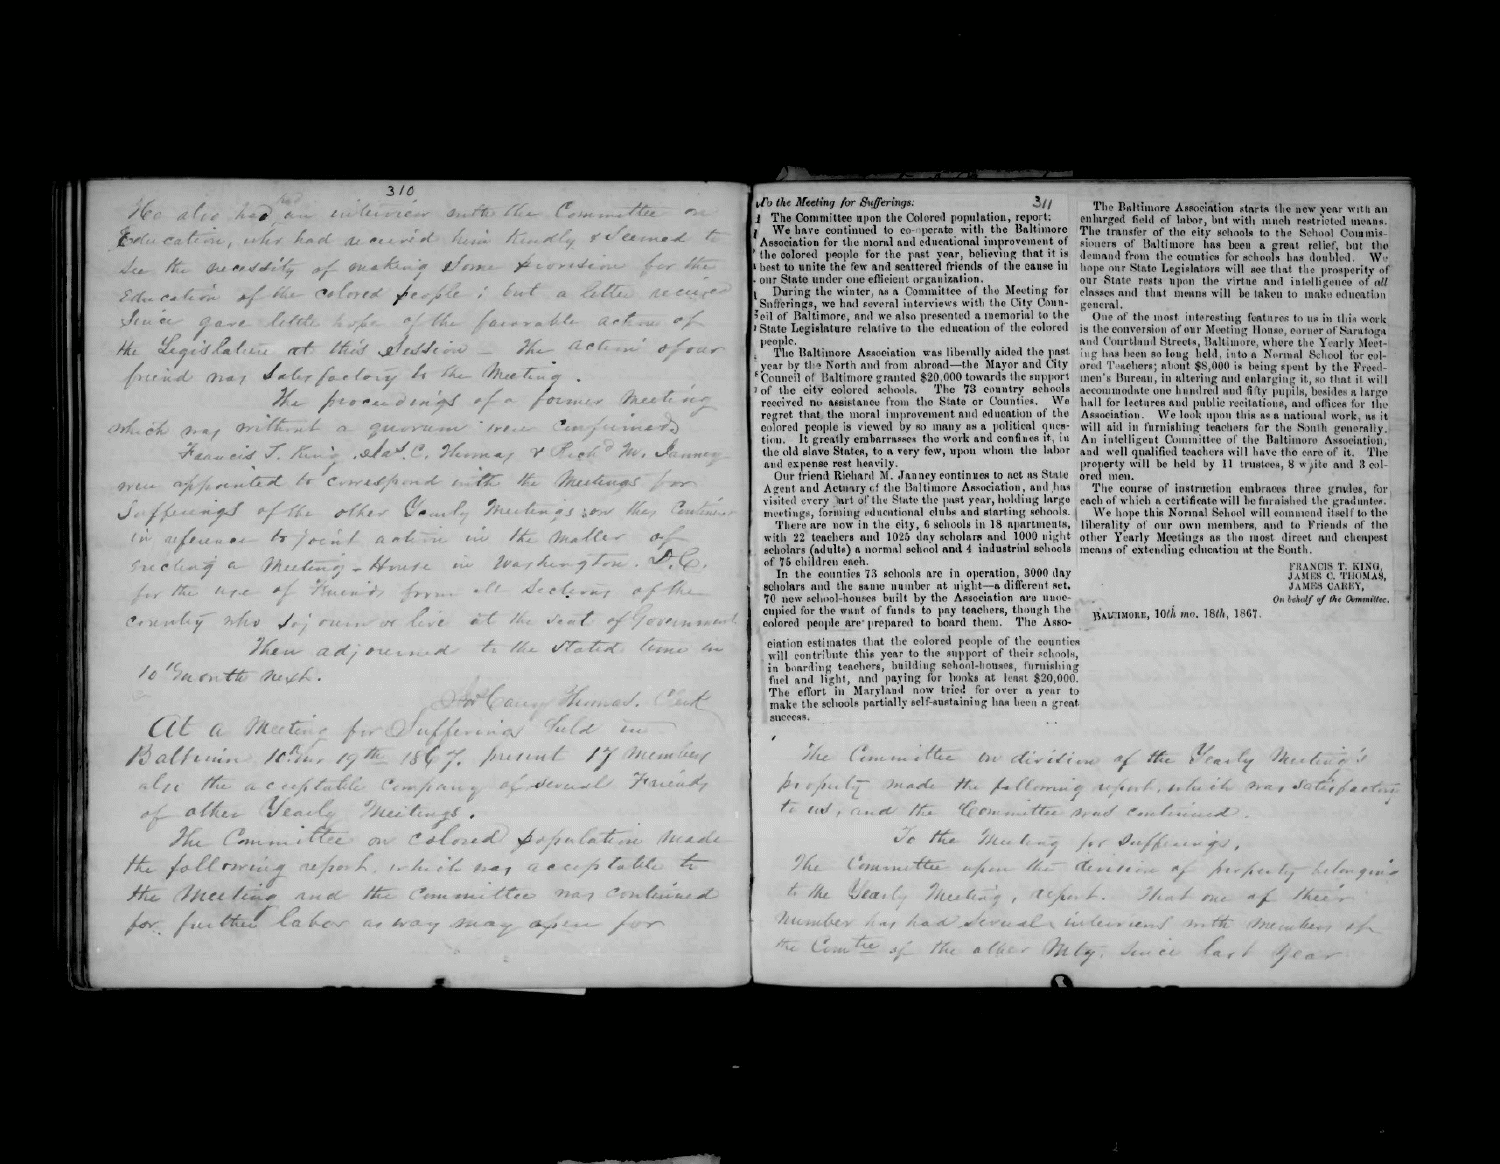 310
He also had had an interview with the Committee on
Education, who had received him kindly & seemed to
see the necessity of making some provision for the
Education of the colored people; but a letter received
since gave little hope of the favorable action of
the Legislature at this session – The action of our
friend was satisfactory to the Meeting.
The proceedings of a former Meeting
which was without a quorum were confirmed
Francis T. King, Jas. C. Thomas & Richd M. Janney
were appointed to correspond with the Meetings for
Sufferings of the other Yearly Meetings on this Continent
in reference to joint action in the matter of
erecting a Meeting-House in Washington. D.C.
for the use of Friends from all sections of the
country who sojourn or live at the seat of Government
Then adjourned to the stated time in
10th month next.
Carey Thomas. Clerk
At a Meeting for Sufferings held in
Baltimore 10th mo 19th 1867. present 17 members
also the acceptable company of several Friends
of other Yearly Meetings.
The Committee on Colored population made
the following report, which was acceptable to
the Meeting and the Committee was continued
for further labor as way may open for
311
To the Meeting for Sufferings:
The Committee upon the Colored population, report:
We have continued to co-operate with the Baltimore
Association for the moral and educational improvement of
the colored people for the past year, believing that it is
best to unite the few and scattered friends of the cause in
our State under one efficient organization.
During the winter, as a Committee of the Meeting for
Sufferings, we had several interviews with the City Coun-
cil of Baltimore, and we also presented a memorial to the
State Legislature relative to the education of the colored
people.
The Baltimore Association was liberally aided the past
year by the North and from abroad—the Mayor and City
Council of Baltimore granted $20,000 towards the support
of the city colored schools. The 73 country schools
received no assistance from the State or Counties. We
regret that the moral improvement and education of the
colored people is viewed by so many as a political ques-
tion. It greatly embarrasses the work and confines it, in
the old slave States, to a very few, upon whom the labor
and expense rest heavily.
Our friend Richard M. Janney continues to act as State
Agent and Actuary of the Baltimore Association, and has
visited every part of the State the past year, holding large
meetings, forming educational clubs and starting schools.
There are now in the city, 6 schools in 18 apartments,
with 22 teachers and 1025 day scholars and 1000 night
scholars (adults) a normal school and 4 industrial schools
of 75 children each.
In the counties 73 schools are in operation, 3000 day
scholars and the same number at night—a different set.
70 new school-houses built by the Association are unoc-
cupied for the want of funds to pay teachers, though the
colored people are prepared to board them. The Asso-
ciation estimates that the colored people of the counties
will contribute this year to the support of their schools,
in boarding teachers, building school-houses, furnishing
fuel and light, and paying for books at least $20,000.
The effort in Maryland now tried for over a year to
make the schools partially self-sustaining has been a great
success.
The Baltimore Association starts the new year with an
enlarged field of labor, but with much restricted means.
The transfer of the city schools to the School Commis-
sioners of Baltimore has been a great relief, but the
demand from the counties for schools has doubled. We
hope our State Legislators will see that the prosperity of
our State rests upon the virtue and intelligence of all
classes and that means will be taken to make education
general.
One of the most interesting features to us in this work
is the conversion of our Meeting House, corner of Saratoga
and Courtland Streets, Baltimore, where the Yearly Meet-
ing has been so long held, into a Normal School for col-
ored Teachers; about $8,000 is being spent by the Freed-
men's Bureau, in altering and enlarging it, so that it will
accommodate one hundred and fifty pupils, besides a large
hall for lectures and public recitations, and offices for the
Association. We look upon this as a national work, as it
will aid in furnishing teachers for the South generally.
An intelligent Committee of the Baltimore Association,
and well qualified teachers will have the care of it. The
property will be held by 11 trustees, 8 white and 3 col-
ored men.
The course of instruction embraces three grades, for
each of which a certificate will be furnished the graduates.
We hope this Normal School will commend itself to the
liberality of our own members, and to Friends of the
other Yearly Meetings as the most direct and cheapest
means of extending education at the South.
FRANCIS T. KING,
JAMES C. THOMAS,
JAMES CAREY,
On behalf of the Committee.
BALTIMORE, 10th mo. 18th, 1867.
The Committee on division of the Yearly Meeting's
property made the following report, which was satisfactory
to us, and the Committee was continued.
To the Meeting for Sufferings.
The Committee upon the division of property belonging
to the Yearly Meeting, report. That one of their
number has had several interviews with members of
the Comtee of the other Mtg. since last Year